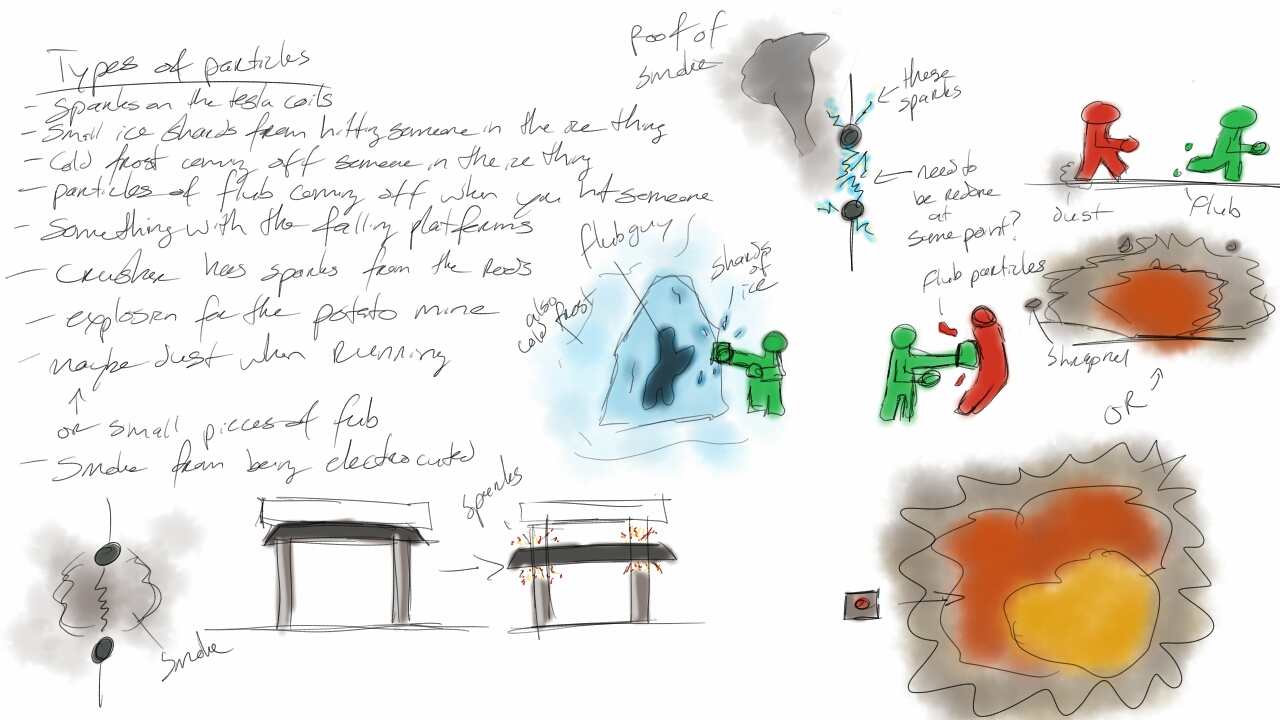 Types of particles
- Sparks on the tesla coils
- Small ice shards from hitting someone in the ice thing
- Cold frost coming off someone in the ice thing
- particles of flub coming off when you hit someone
- Something with the falling platforms
- Crusher has sparks from the rods
- explosion for the potato mine
- maybe dust when running
or small pieces of flub
- Smoke from being electrocuted
Poof of
smoke
these
sparks
need to
be redone
at
some point?
dust
flub
flub guy
shards
of
ice
also
cold frost
flub particles
shrapnel
OR
sparks
smoke